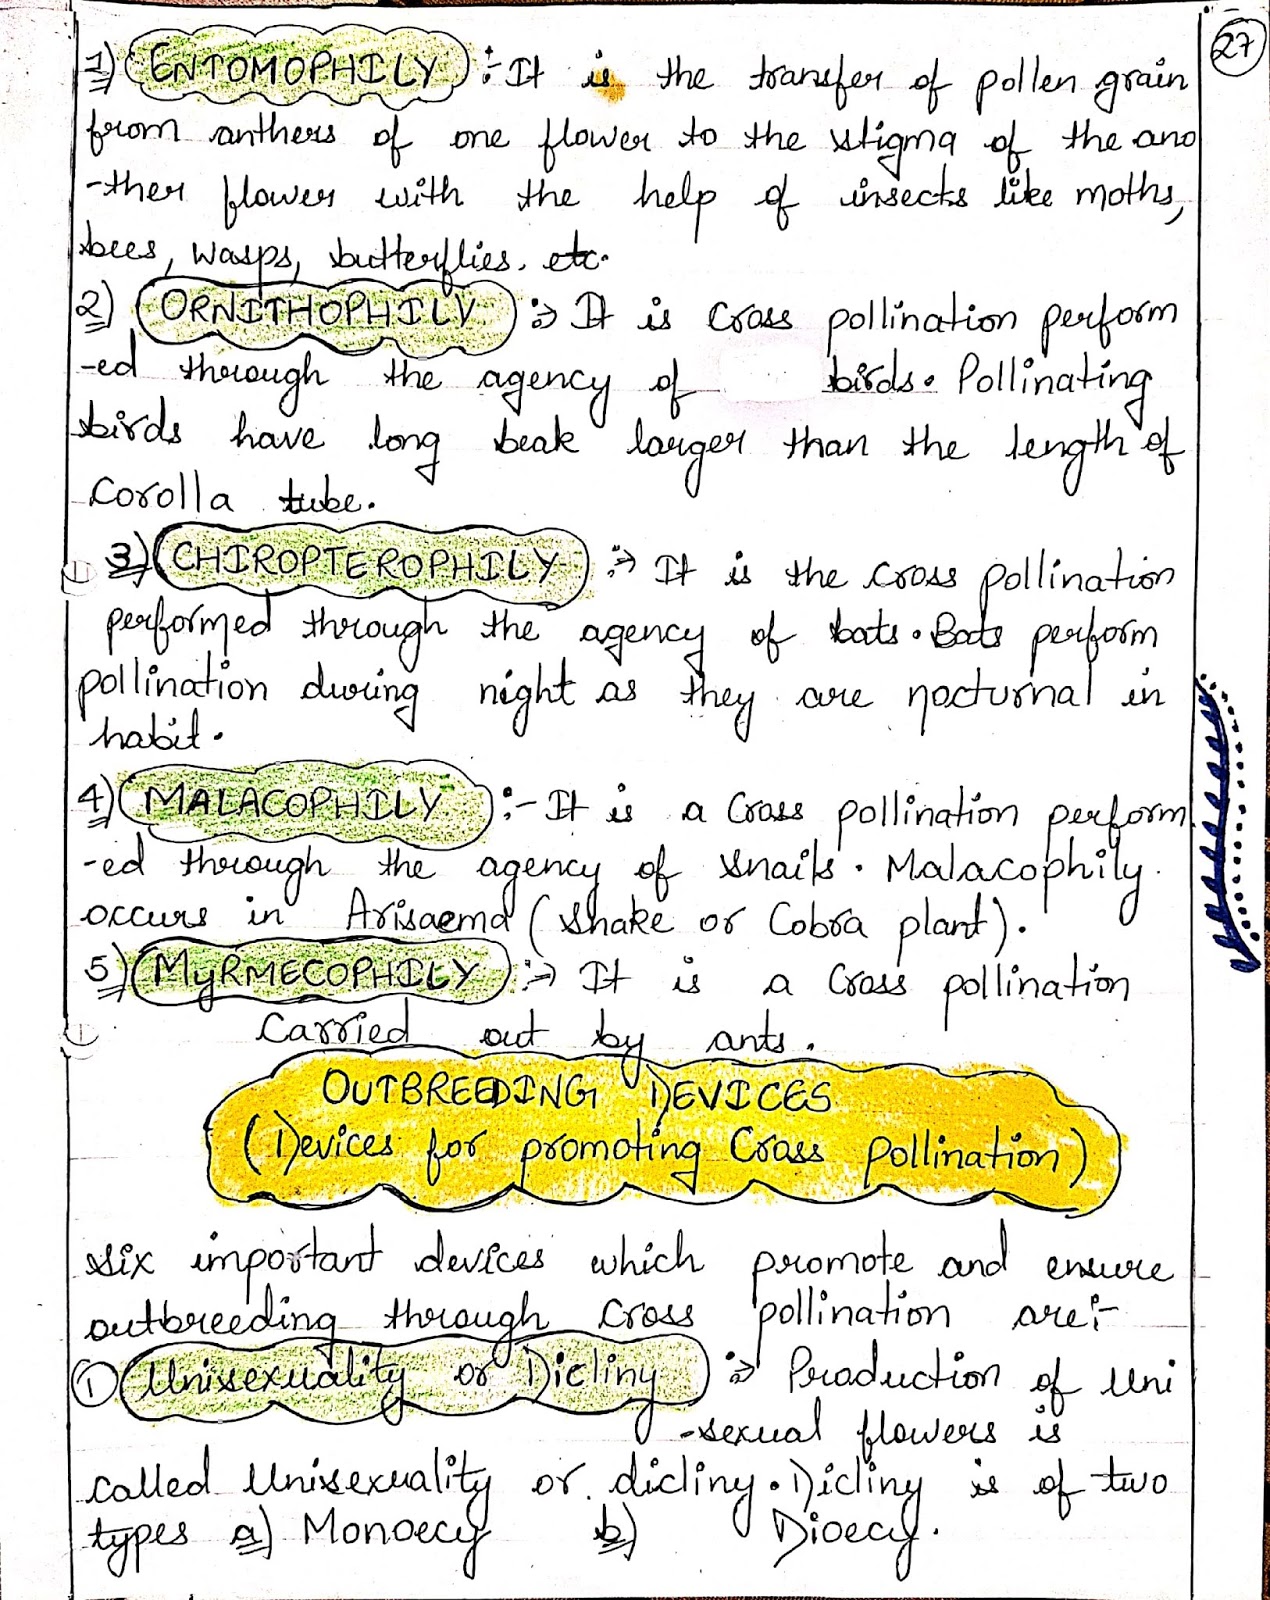 27
1) ENTOMOPHILY :- It is the transfer of pollen grain
from anthers of one flower to the stigma of the ano
-ther flower with the help of insects like moths,
bees, wasps, butterflies. etc.
2) ORNITHOPHILY :→ It is cross pollination perform
-ed through the agency of birds. Pollinating
birds have long beak larger than the length of
Corolla tube.
3) CHIROPTEROPHILY :→ It is the cross pollination
performed through the agency of bats. Bats perform
pollination during night as they are nocturnal in
habit.
4) MALACOPHILY :- It is a Cross pollination perform
-ed through the agency of snails. Malacophily.
occurs in Arisaema (snake or Cobra plant).
5) MyRMECOPHILY :→ It is a Cross pollination
Carried out by ants.
OUTBREEDING DEVICES
(Devices for promoting Cross pollination)
six important devices which promote and ensure
outbreeding through cross pollination are:-
① Unisexuality or Dicliny :→ Production of uni
-sexual flowers is
called Unisexuality or dicliny. Dicliny is of two
types a) Monoecy b) Dioecy.